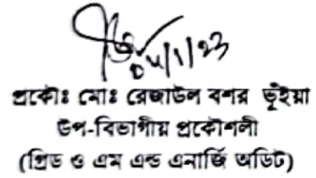 04/1/23
প্রকৌঃ মোঃ রেজাউল বশর ভূঁইয়া
উপ-বিভাগীয় প্রকৌশলী
(গ্রিড ও এম এন্ড এনার্জি অডিট)